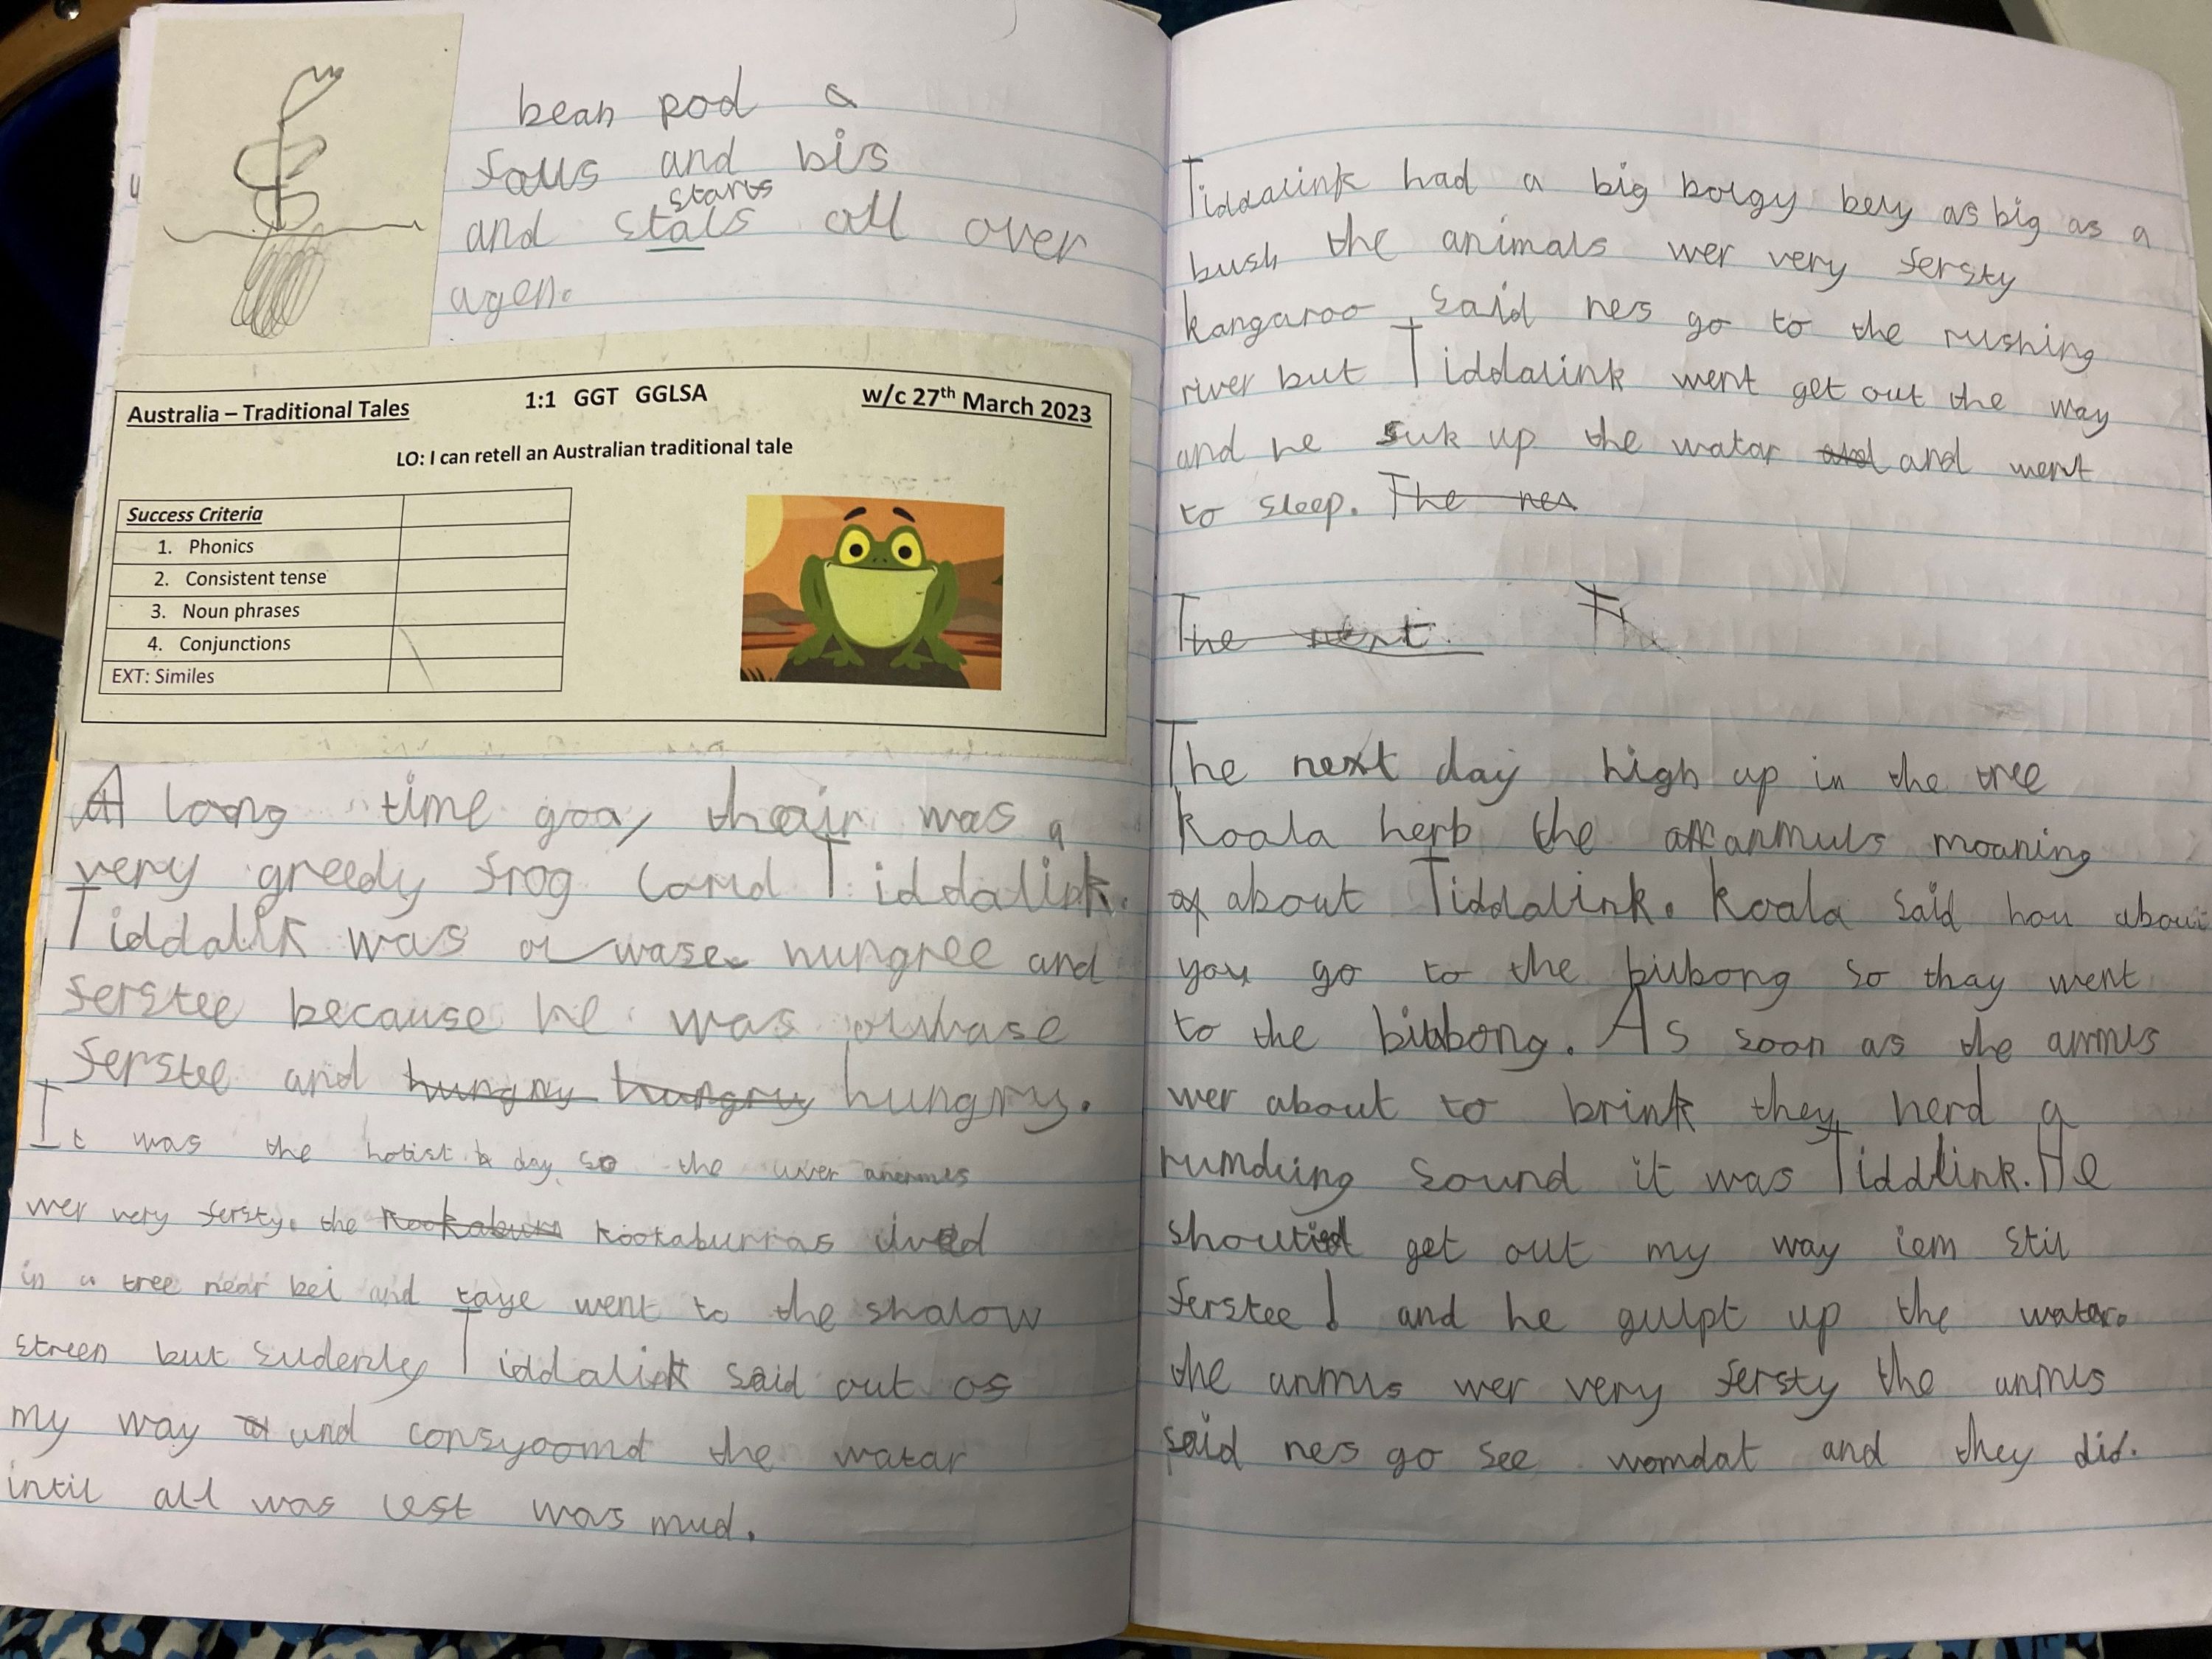 bean pod a
falls and bis
starts
and stals all over
agen.
Australia – Traditional Tales
1:1 GGT GGLSA
w/c 27th March 2023
LO: I can retell an Australian traditional tale
Success Criteria
1. Phonics
2. Consistent tense
3. Noun phrases
4. Conjunctions
EXT: Similes
A long time goa, thair was a
very greedy frog cord Tiddalink.
Tiddalik was olwase hungree and
ferstee because he was olwase
ferstee and hungry hungry hungry.
It was the hotist day so the uver anermes
wer very fersty. the Kookaburr kookaburras lived
in a tree near bei and taye went to the shalow
streen but sudenley Tiddalink said out of
my way and consyoomd the watar
intil all was lest was mud.
Tiddalink had a big bolgy bely as big as a
bush the animals wer very fersty
kangaroo said nes go to the rushing
river but Tiddalink went get out the way
and he suk up the watar and and went
to sleep. The nex
The next. Th
The next day high up in the tree
Koala herb the anmuls moaning
about Tiddalink. Koala said hou about
you go to the bilbong so thay went
to the bilbong. As soon as the anmls
wer about to brink they herd a
rumdling sound it was Tiddlink. He
shoutied get out my way iem stil
ferstee! and he gulpt up the watar.
the anmls wer very fersty the anmls
said nes go see womdat and they did.